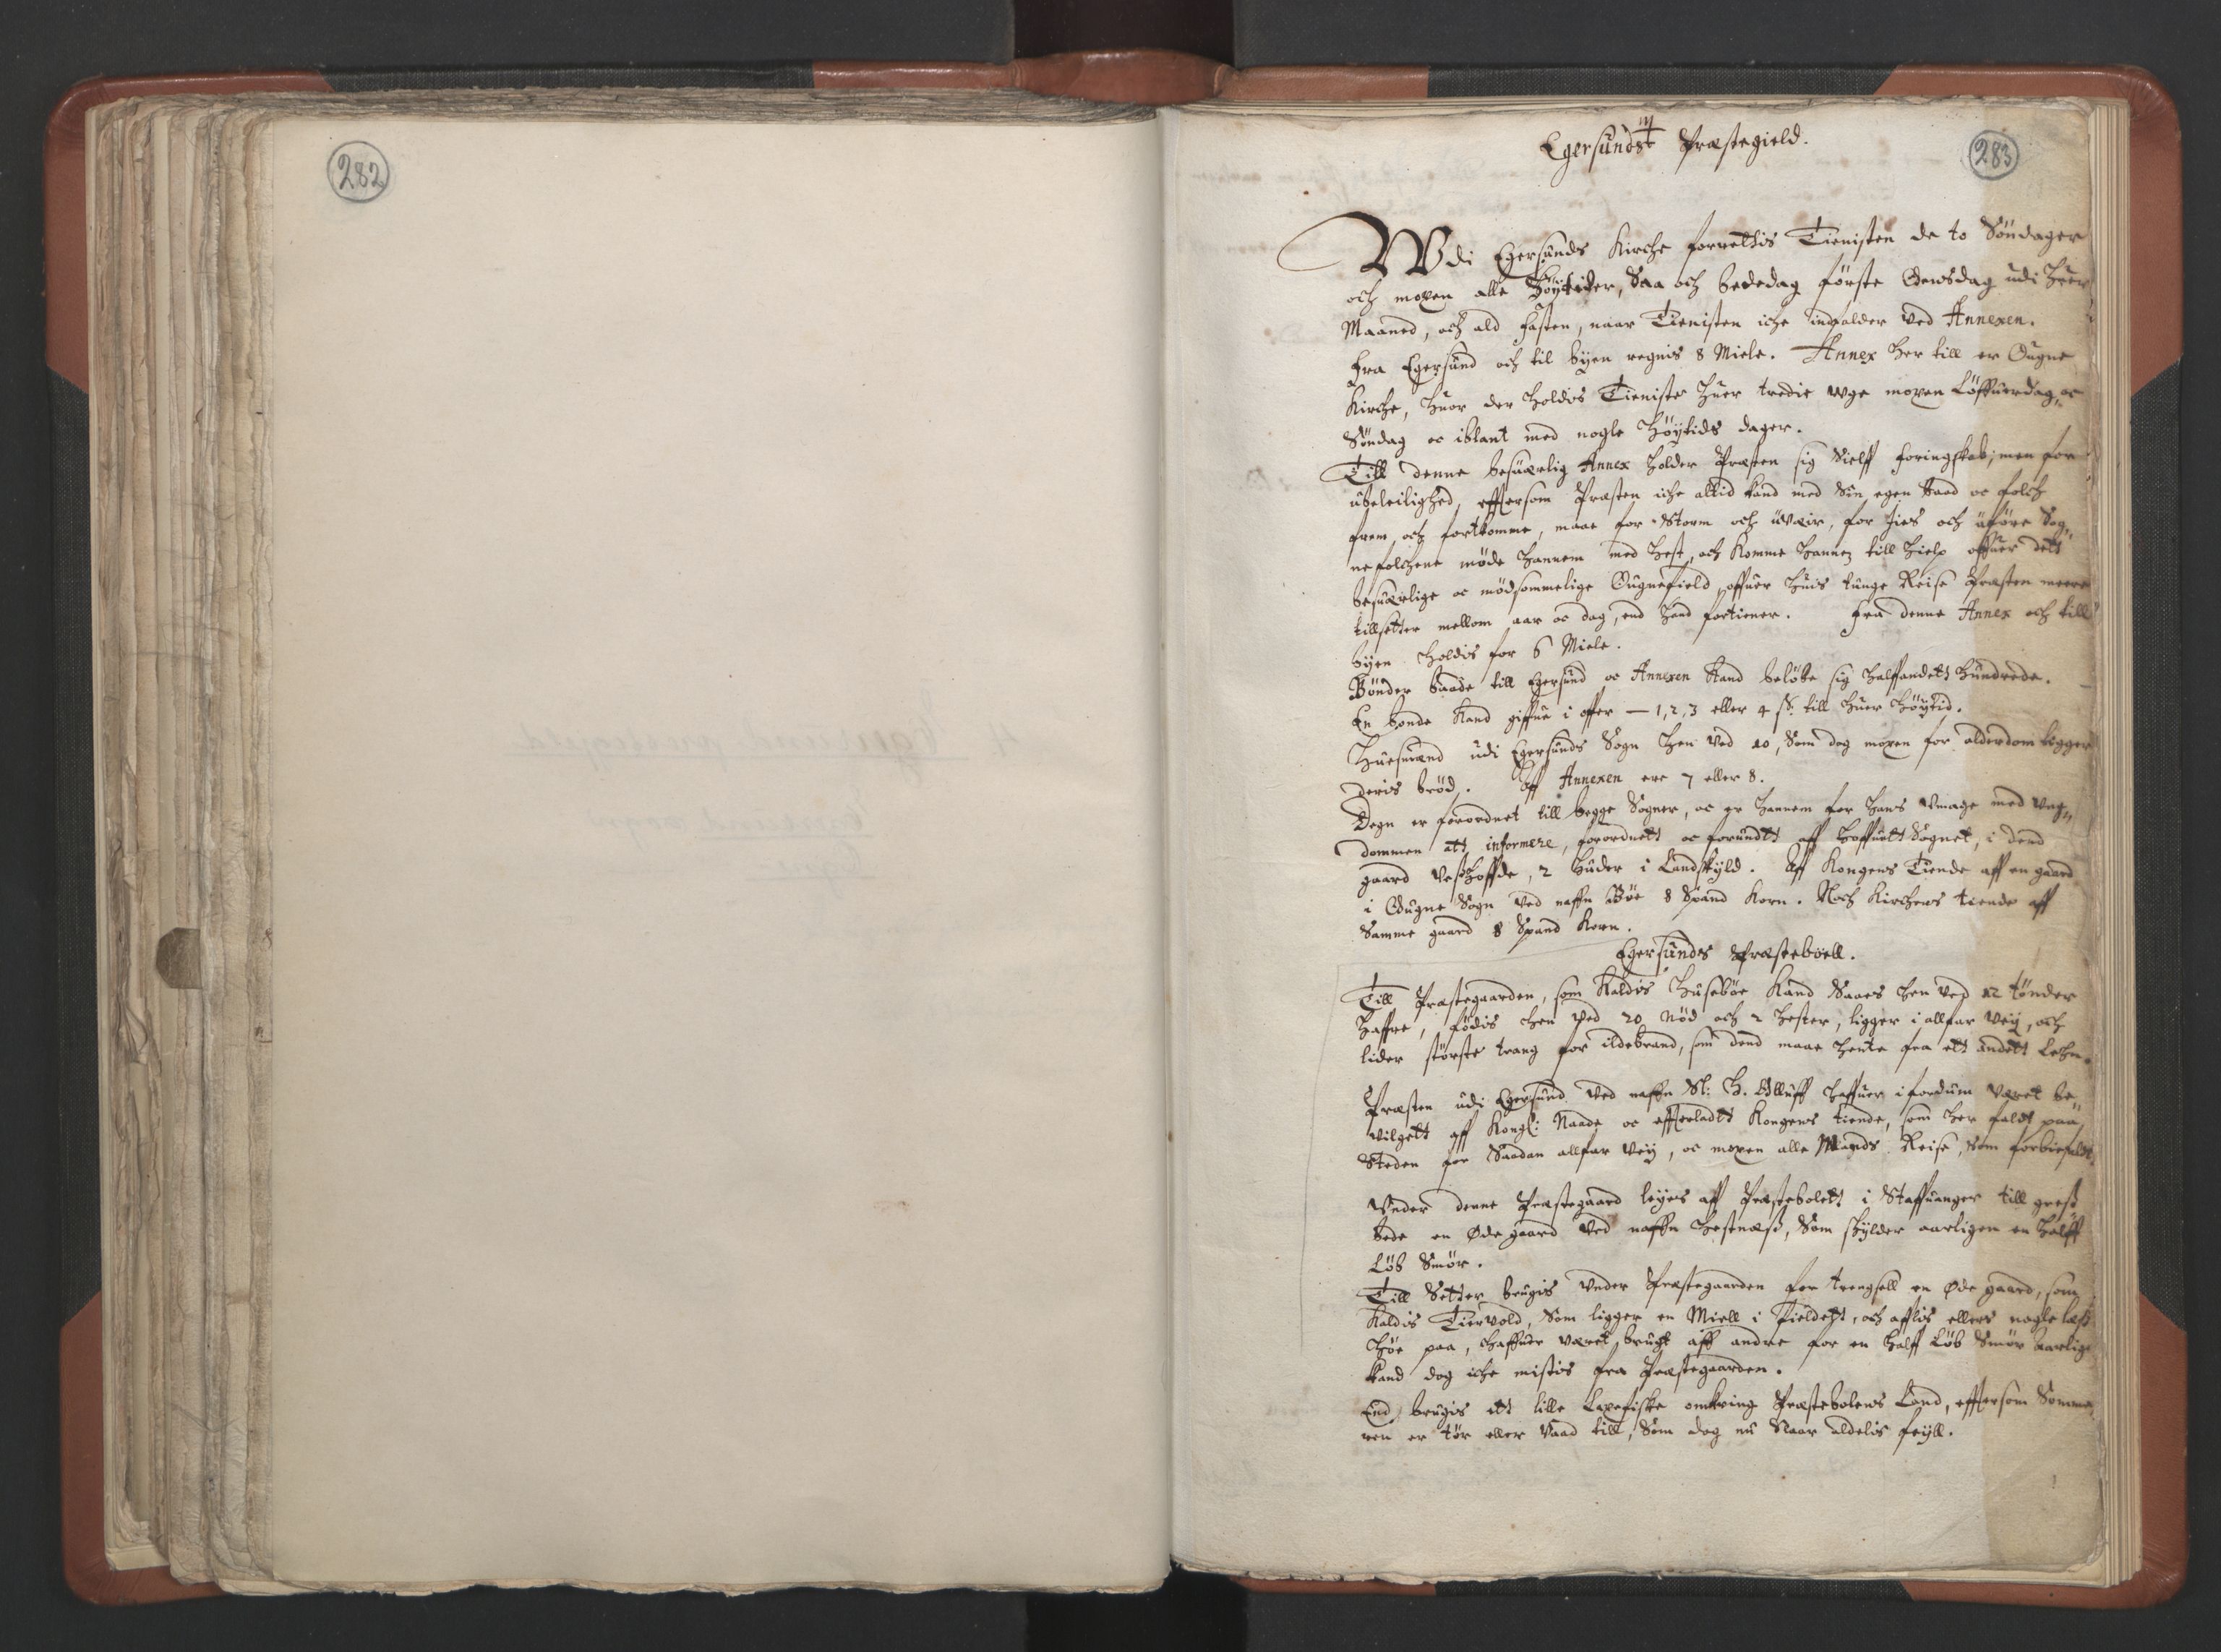 282
283
Egersunds Præstegield.
Wdi Egersunds Kirche forrettis Tienisten de to Søndager
och moxen alle Høÿtider, Saa och bededag første Onsdag udi huer
Maaned, och ald fasten, naar Tienisten iche indfalder ved Annexen.
Fra Egersund och til byen regnis 8 Miele. Annex her till er Ougne
Kirche, huor der holdis Tieniste huer tredie wge moxen Løffuerdag, oc
Søndag oc iblant med nogle Høÿtids dager.
Till denne besuærlig Annex holder Præsten sig Sielff foringskab; men for
ubeleilighed, effttersom Præsten iche altid kand med Sin egen baad oc folch
frem och fortkomme, maae for Storm och uvæir, for Jiis och uføre Sog„
nefolchene møde hannem med hest, och komme hannem till hielp offuer dett
besuærlige oc mødsommelige Ougnefield, offuer huis tunge Reise Præsten meere
tillsetter mellom aar oc dag, end hand fortiener. Fra denne Annex och till
bÿen holdis for 6 Miele.
Bønder baade till Egersund oc Annexen kand beløbe sig halffandett hundrede.
En bonde kand giffue i offer — 1, 2, 3 eller 4 ß. till huer Høÿtid.
Huusmænd udi Egersunds Sogn hen ved 20, Som dog moxen for alderdom tigger
deris brød. Aff Annexen ere 7 eller 8.
Degn er forordnet till begge Sogner, oc er hannem for hans Vmage med Vng„
dommen att informere, forordnett oc forundtt aff Hoffuett Sognet, i dend
gaard , 2 huder i Landskÿld. Aff Kongens Tiende aff en gaard
i Ougne Sogn ved naffn Bøe 8 Spand Korn. Noch Kirchens tiende aff
Samme gaard 8 Spand Korn.
Egersunds Præsteboell.
Till Præstegaarden, som Kaldis Husebøe kand Saaes hen ved 12 tønder
haffre, fødis hen ved 20 Nød och 2 hester, ligger i allfar Veÿ, och
lider største trang for ildebrand, som dend maae hente fra ett andett Lehn.
Præsten udi Egersund ved naffn Sl: H. Olluff haffuer ifordum været be„
vilgett aff Kongl: Naade oc effterladtt Kongens tiende, som her faldt paa
Steden for Saadan allfar Veÿ, oc moxen alle Mands Reise, som forbiefaldt.
Vnder denne Præstegaard leÿes aff Præstebolett i Staffuanger till greß
bede en Øde gaard ved naffn Hestnæß, Som skÿlder aarligen en halff
Løb Smør.
Till Setter brugis vnder Præstegaarden for trengsell en Øde gaard, som
kaldis Tiervold, Som ligger en Miell i fieldett, och afflis ellers nogle læß
Høe paa, haffuer været brugt aff andre for en halff Løb Smør Aarlig
kand dog iche mistis fra Præstegaarden.
End brugis ett lille Laxefiske omkring Præstebolens Land, effttersom Somme„
ren er tør eller Vaad till, Som dog nu Slaar aldelis feÿll.